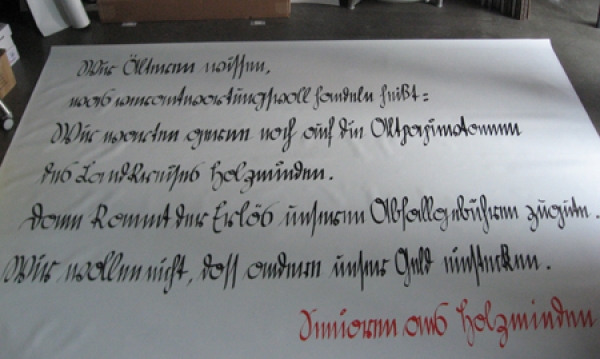 Wir Älteren wissen,
was verantwortungsvoll handeln heißt:
Wir warten gerne noch auf die Altpapiertonne
des Landkreises Holzminden.
Dann kommt der Erlös unseren Abfallgebühren zugute.
Wir wollen nicht, dass andere unser Geld einstecken.
Senioren aus Holzminden